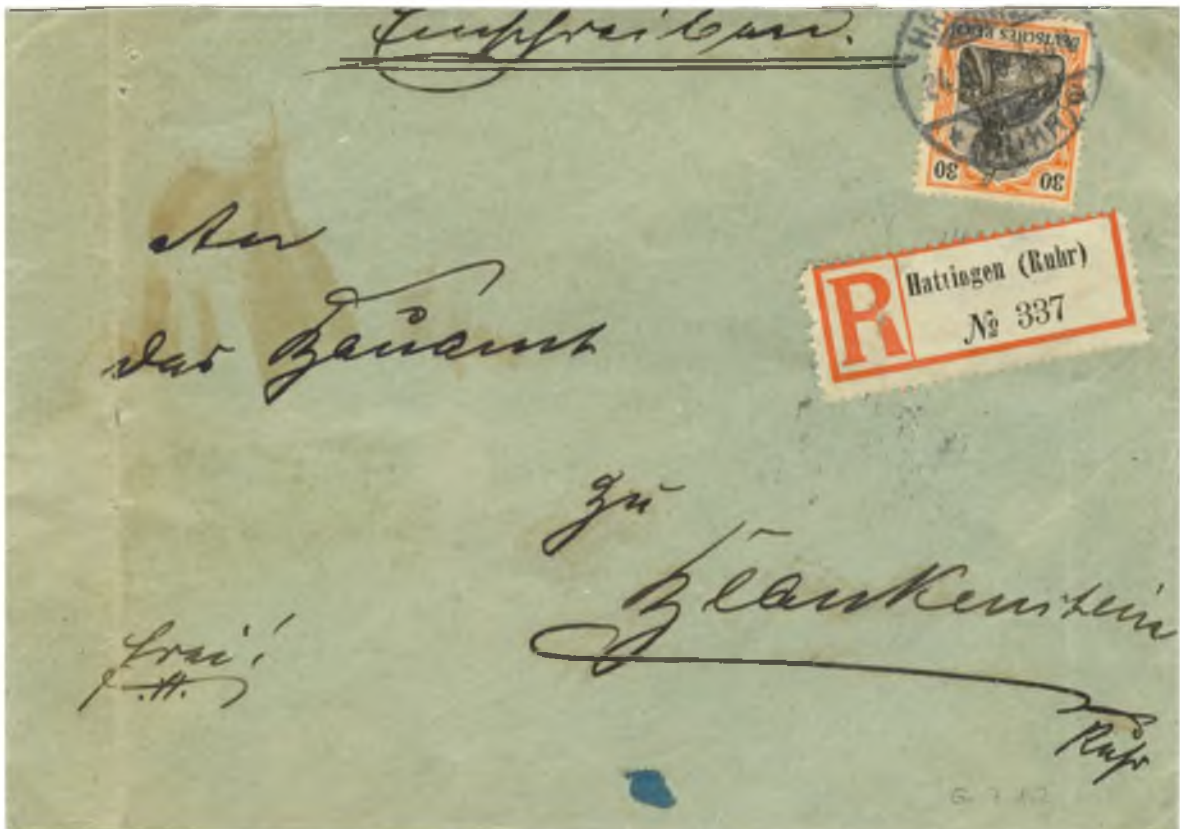 Einschreiben.
DEUTSCHES REICH
30 30
RUHR
R Hattingen (Ruhr)
№ 337
An
das Bauamt
zu
Blankenstein
Ruhr
frei!